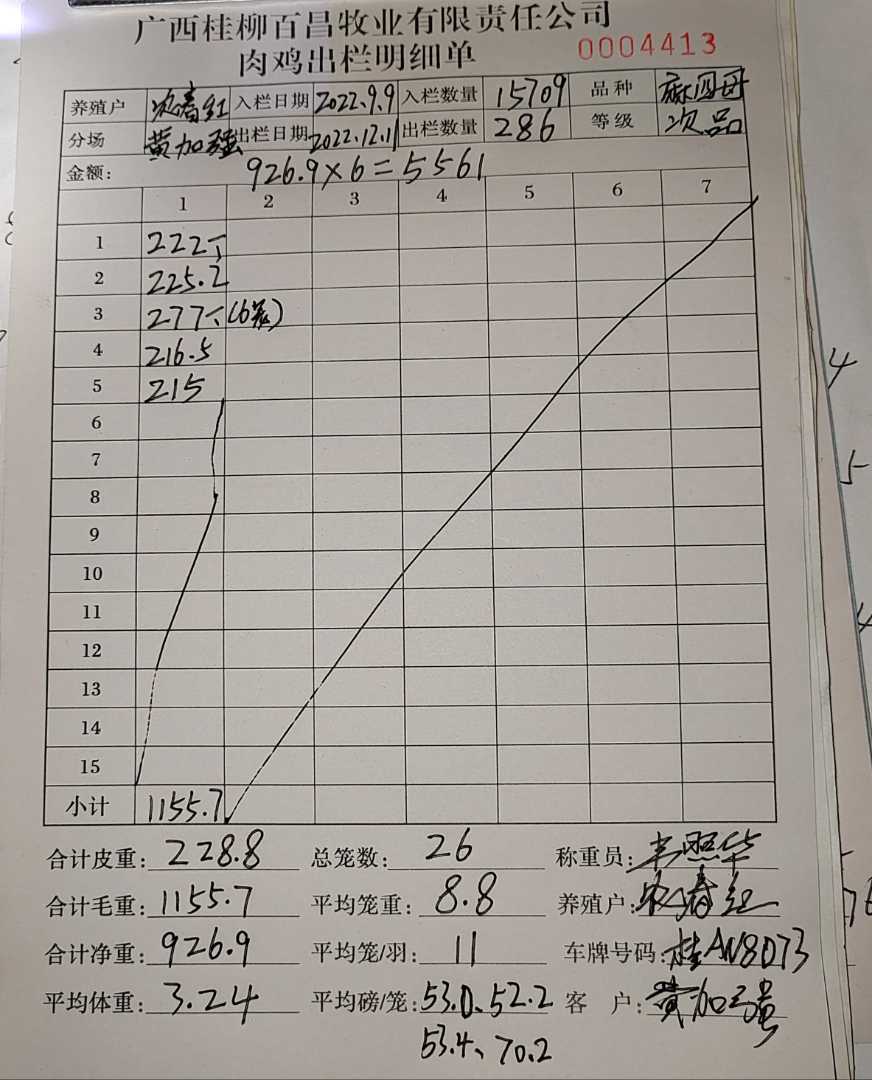 广西桂柳百昌牧业有限责任公司
肉鸡出栏明细单 0004413
养殖户 春红 入栏日期 2022.9.9 入栏数量 15709 品种 麻
分场 黄加强 出栏日期 2022.12.11 出栏数量 286 等级 次品
金额: 926.9×6=5561
1 2 3 4 5 6 7
1 222
2 225.2
3 277 (6笼)
4 216.5
5 215
6
7
8
9
10
11
12
13
14
15
小计 1155.7
合计皮重: 228.8 总笼数: 26 称重员: 韦照华
合计毛重: 1155.7 平均笼重: 8.8 养殖户: 春红
合计净重: 926.9 平均笼/羽: 11 车牌号码: 桂AN8D73
平均体重: 3.24 平均磅/笼: 53.0、52.2 客 户: 黄加强
53.4、70.2